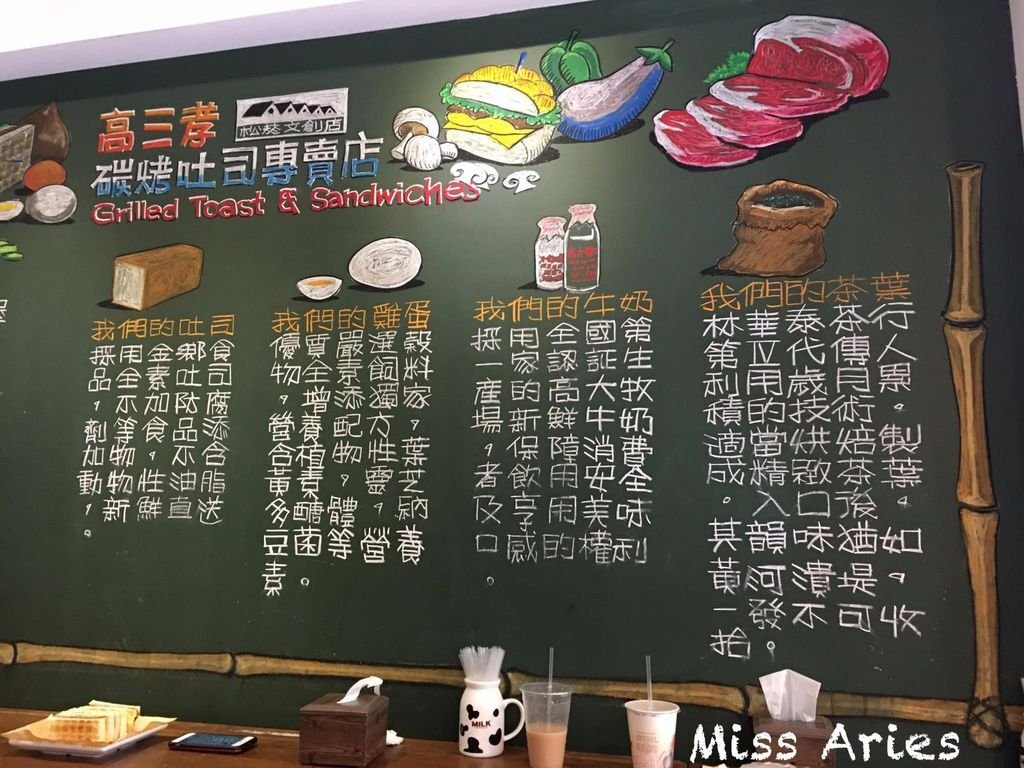 高三孝
松菸文創店
碳烤吐司專賣店
Grilled Toast & Sandwiches
我們的吐司
採用金鄉食
品全素吐司
。不加防腐
劑等食品添
加物。不含
動物性油脂
。新鮮直送
我們的雞蛋
優質嚴選穀
物全素飼料
。增添獨家
營養配方。
含植物性葉
黃素。靈芝
多醣體。納
豆菌等營養
素。
我們的牛奶
採用全國第
一家認証生
產的高大牧
場。新鮮牛奶
。保障消費
者飲用安全
及享用美味
口感的權利
。
我們的茶葉
林華泰茶行
第五代傳人
利用歲月累
積的技術。
適當烘焙製
成精緻茶葉
。入口後。
其韻味猶如
黃河潰堤。
一發不可收
拾。
MILK
Miss Aries